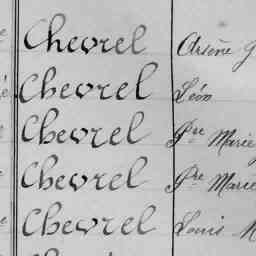 Chevrel Arsène G
Chevrel Léon
Chevrel Pre Marie
Chevrel Pre Marie
Chevrel Louis M